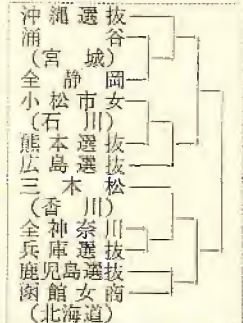 沖縄選抜
涌谷
(宮城)
全静岡
小松市女
(石川)
熊本選抜
広島選抜
三本松
(香川)
全神奈川
兵庫選抜
鹿児島選抜
函館女商
(北海道)